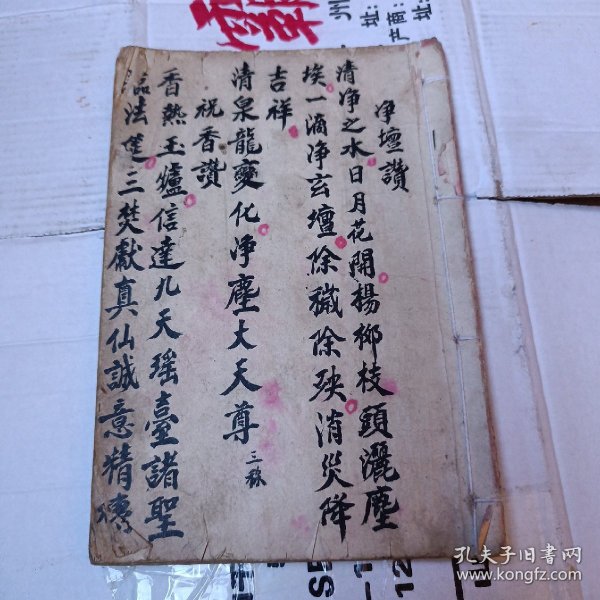 净壇讚
清净之水日月花開楊柳枝頭灑塵
埃一滴净玄壇除穢除殃消災降
吉祥
清泉龍變化净塵大天尊 三称
祝香讚
香熱玉爐信達九天瑤臺諸聖
法筵三焚獻真仙誠意精
孔夫子旧书网
www.kongfz.com